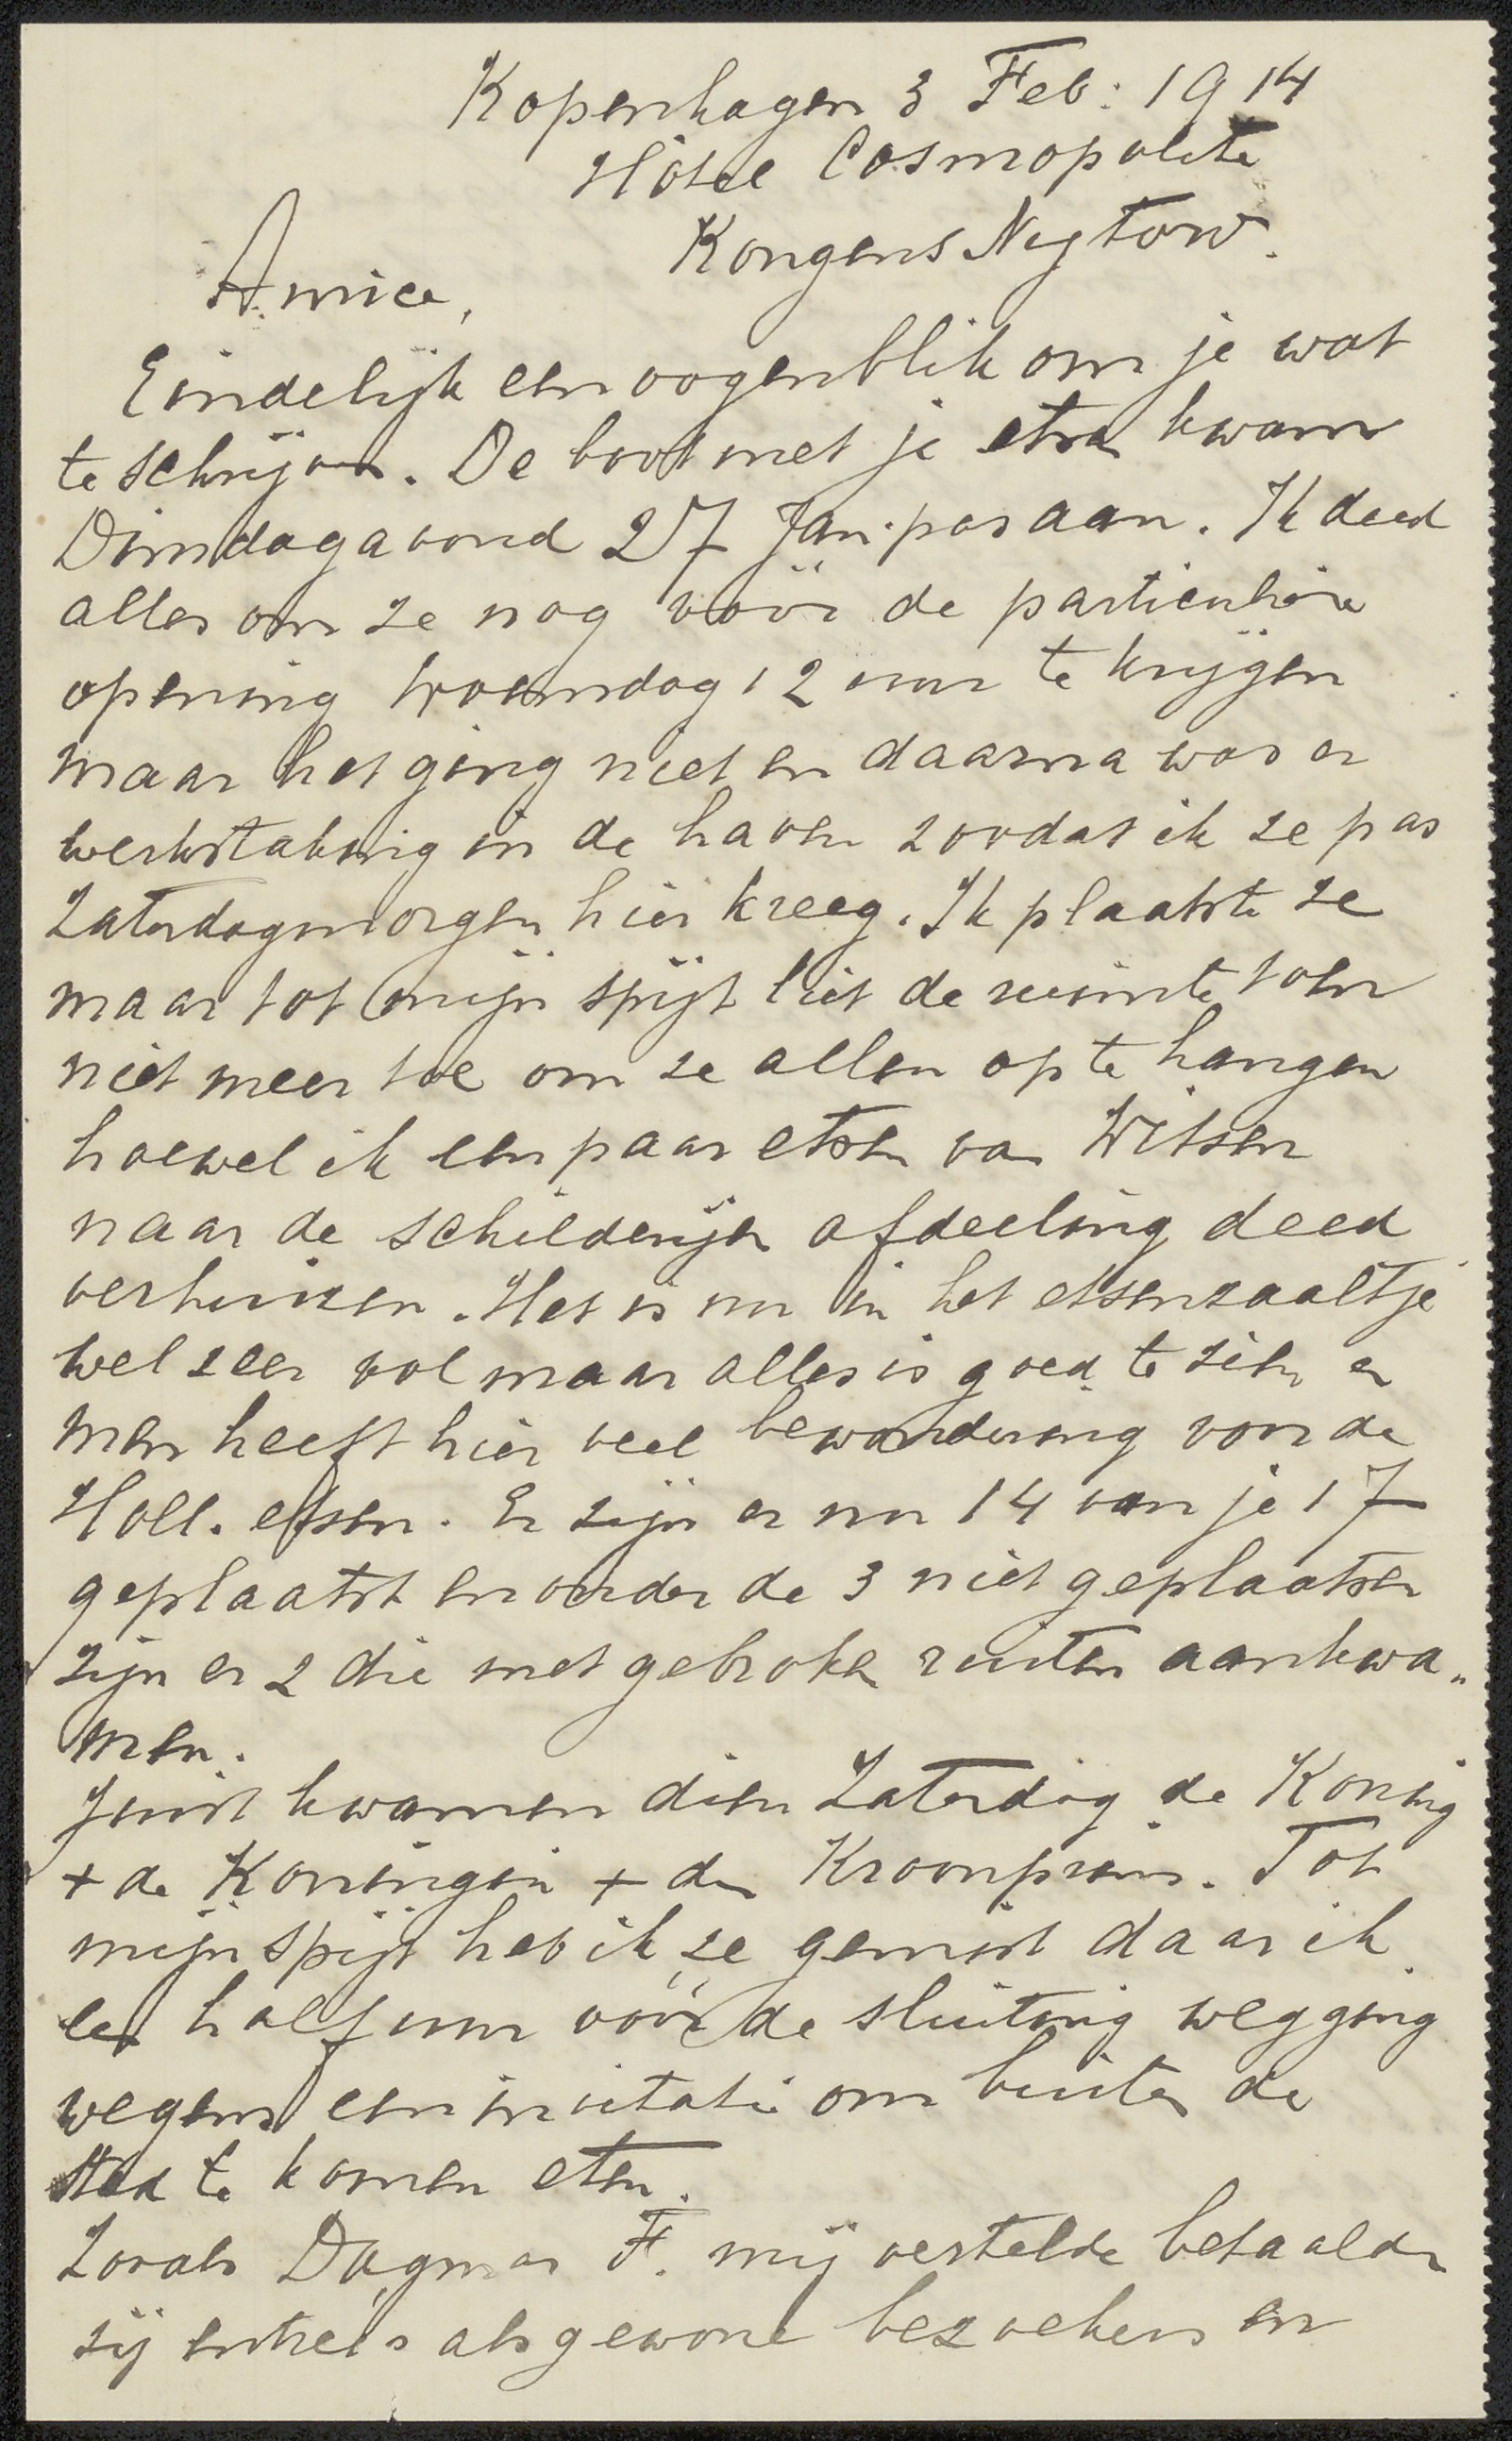 Kopenhagen 3 Feb: 1914
Hôtel Cosmopolite
Kongens Nÿtorv.
Amice,
Eindelijk een oogenblik om je wat
te schrijven. De boot met je etsen kwam
Dinsdagavond 27 Jan. pas aan. Ik deed
alles om ze nog vóór de particuliere
opening Woensdag 12 uur te krijgen
maar het ging niet en daarna was er
werkstaking in de haven zoodat ik ze pas
Zaterdagmorgen hier kreeg. Ik plaatste ze
maar tot mijn spijt liet de ruimte toen
niet meer toe om ze allen op te hangen
hoewel ik een paar etsen van Witsen
naar de schilderijen afdeeling deed
verhuizen. Het is nu in het etsenzaaltje
wel zeer vol maar alles is goed te zien en
men heeft hier veel bewondering voor de
Holl. etsen. Er zijn er nu 14 van je 17
geplaatst en onder de 3 niet geplaatsten
zijn er 2 die met gebroken ruiten aankwa„
men.
Juist kwamen dien Zaterdag de Koning
+ de Koningin + den Kroonprins. Tot
mijn spijt heb ik ze gemist daar ik
een half uur vóór de sluiting wegging
wegens een invitatie om buiten de
stad te komen eten.
Zooals Dagmar F. mij vertelde betaalden
zij entrée's als gewone bezoekers en